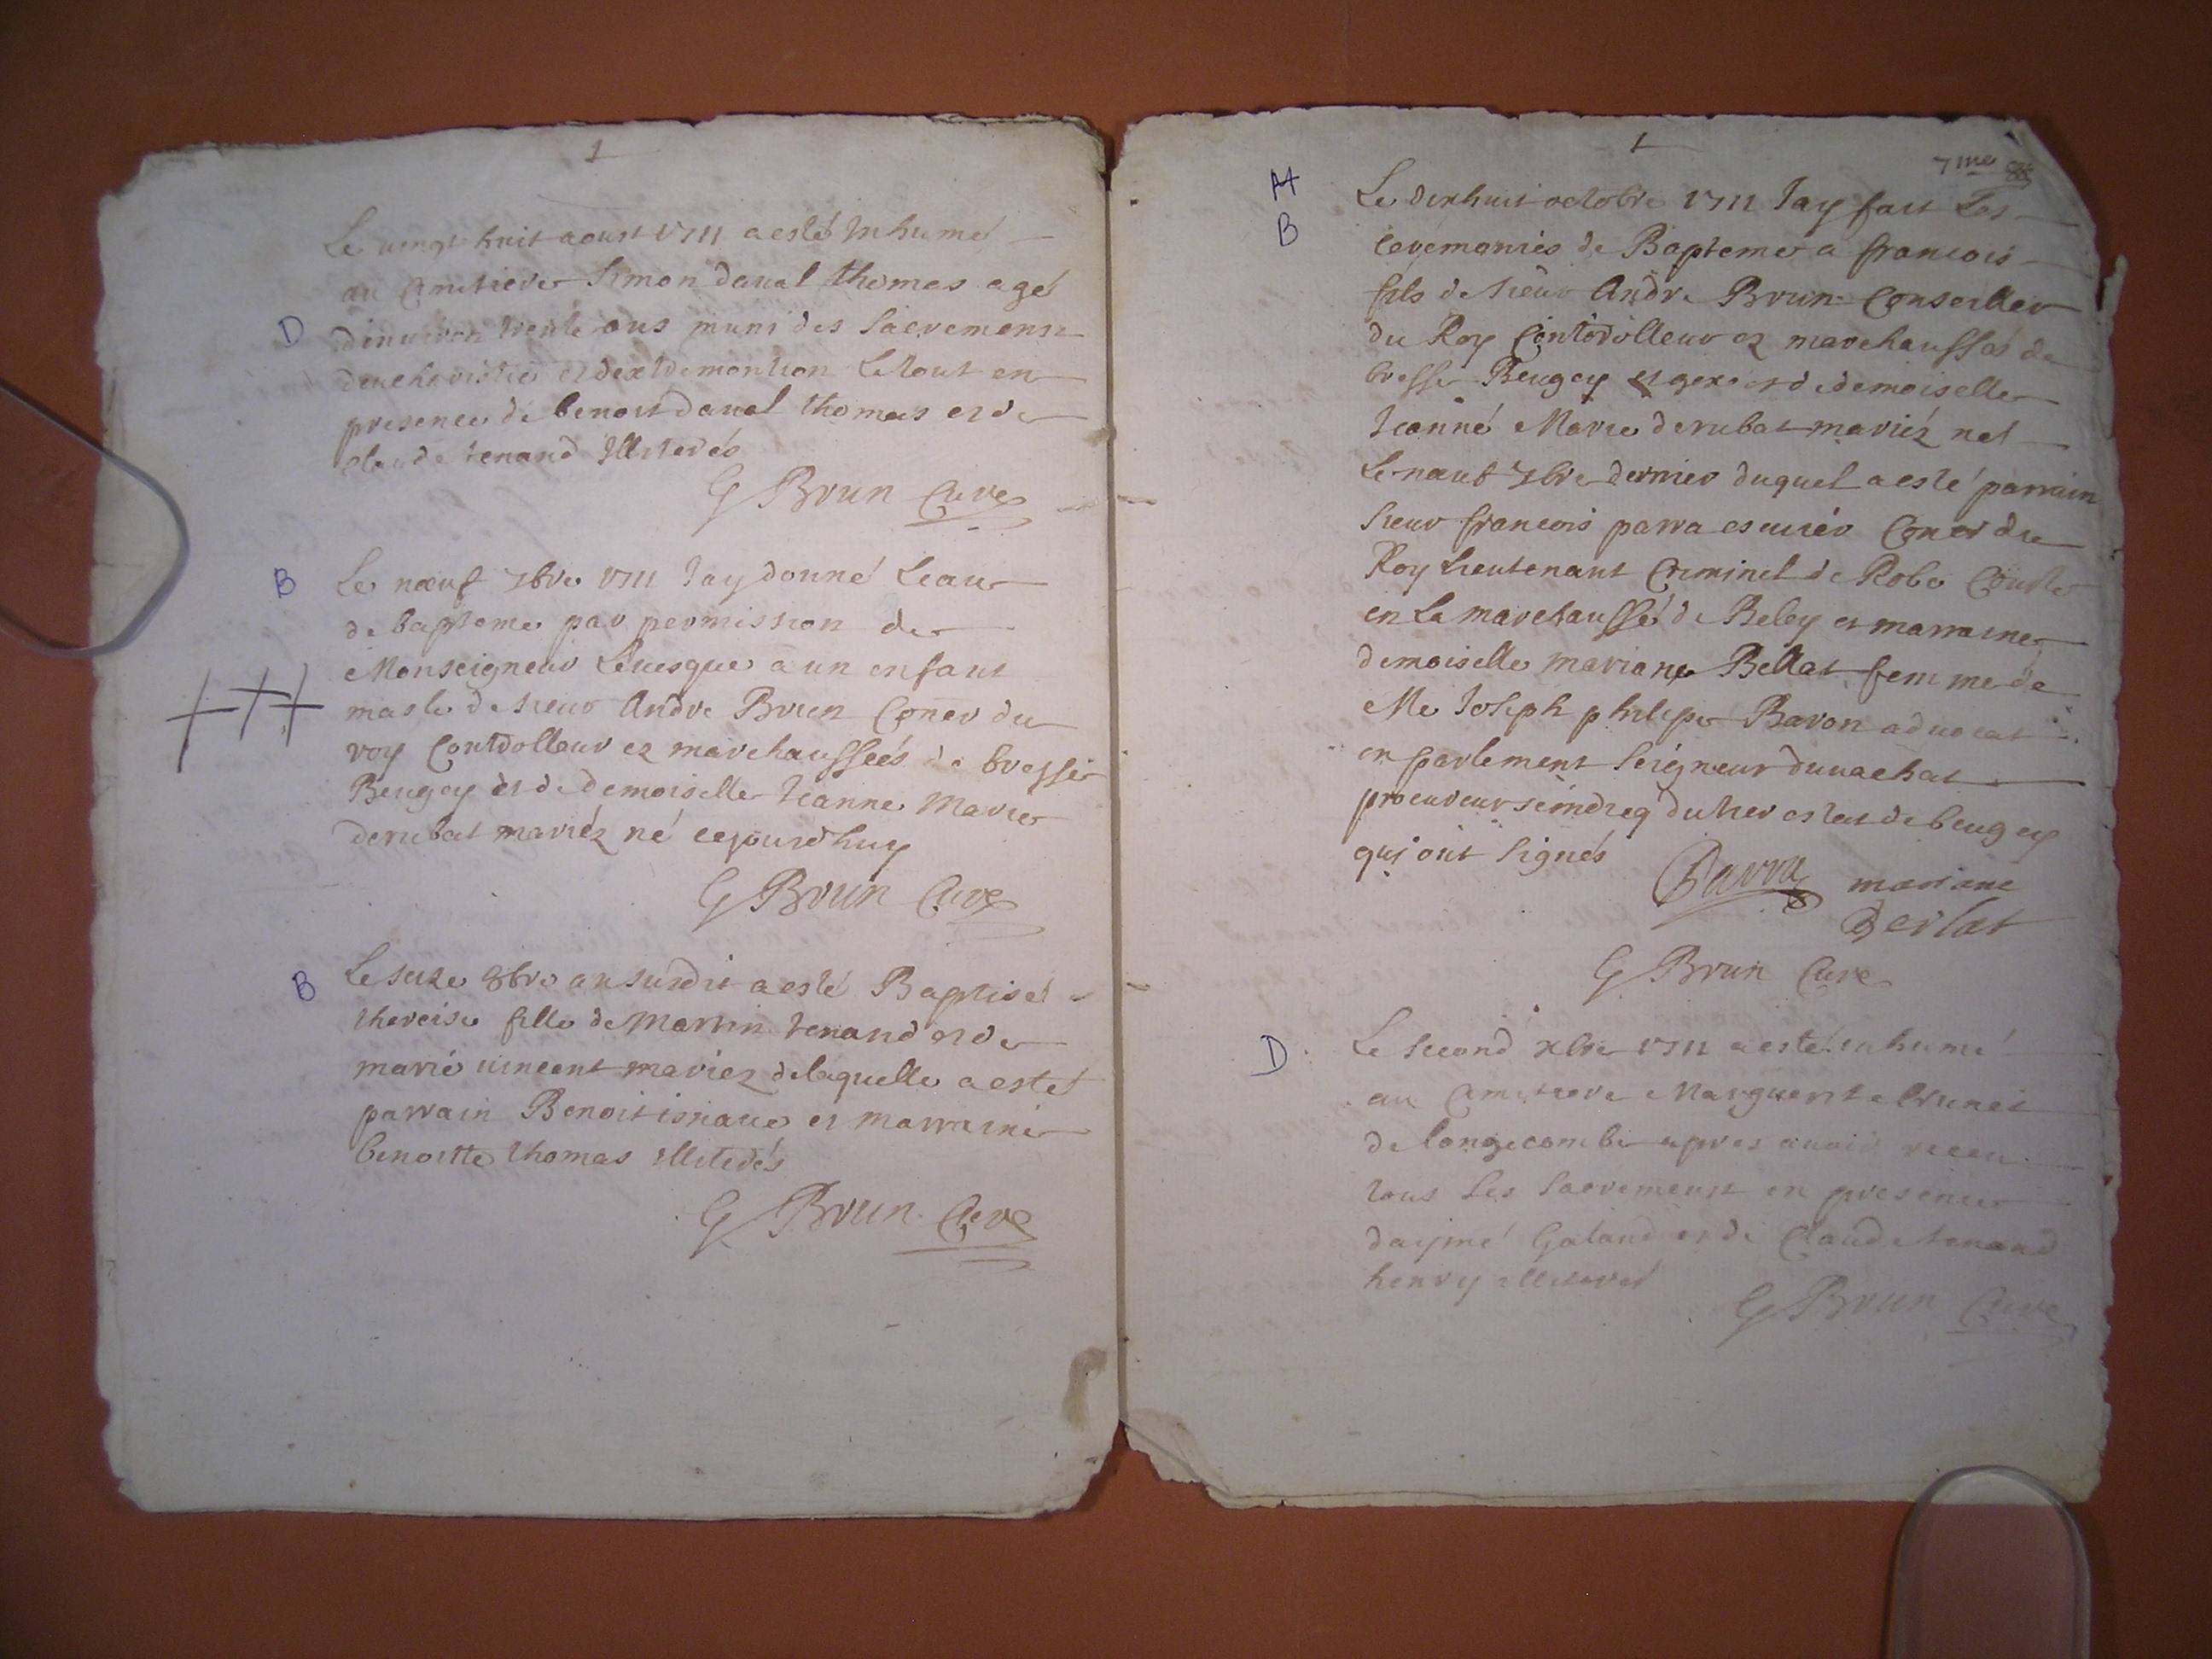 1
Le vingt huit aoust 1711 a esté Inhumé
au Cimetiere Simon daval thomas agé
D
denviron trente ans muni des Sacremens
deucharistie et dextremontion Le tout en
presence de benoit daval thomas et de
Claude tenand Illiterés
G Brun Curé
B
Le noeuf 7bre 1711 Jay donné Leau
de bapteme par permission de
Monseigneur Levesque a un enfant
masle de sieur Andre Brun Coner du
roy Controlleur ez marchaussées de bresse
Beugey et de demoiselle Jeanne Marie
derubat mariéz né cejourdhuy
G Brun Curé
B
Le seize 8bre an susdit a esté Baptisé
thereise fille de Martin tenand et de
marie vincent mariez de laquelle a esté
parrain Benoit ionaue et marraine
benoitte thomas illiterés
G Brun Curé
1
7me
B
Le dixhuit octobre 1711 Jay fait Les
Ceremonies de Bapteme a francois
fils de sieur Andre Brun Conseiller
du Roy Controlleur ez marchaussés de
bresse Beugey et gex et de demoiselle
Jeanne Marie derubat mariéz net
Le noeuf 7bre dernier duquel a esté parrain
sieur francois parra escuier Coner du
Roy Lieutenant Criminel de Robe Courte
en La marchaussé de Beley et marraine
demoiselle mariane Bellat femme de
Me Joseph philipe Baron advocat
en parlement seigneur duvachat
procureur seindieq du tier estat de beugey
qui ont signés
Parra mariane
Berlat
G Brun Curé
D
Le second xbre 1711 a esté inhumé
au Cimetiere Marguerite brunet
de longecombe apres avoir receu
tous Les Sacremens en presence
daymé Galand et de Claude tenand
henry illiterés
G Brun Curé